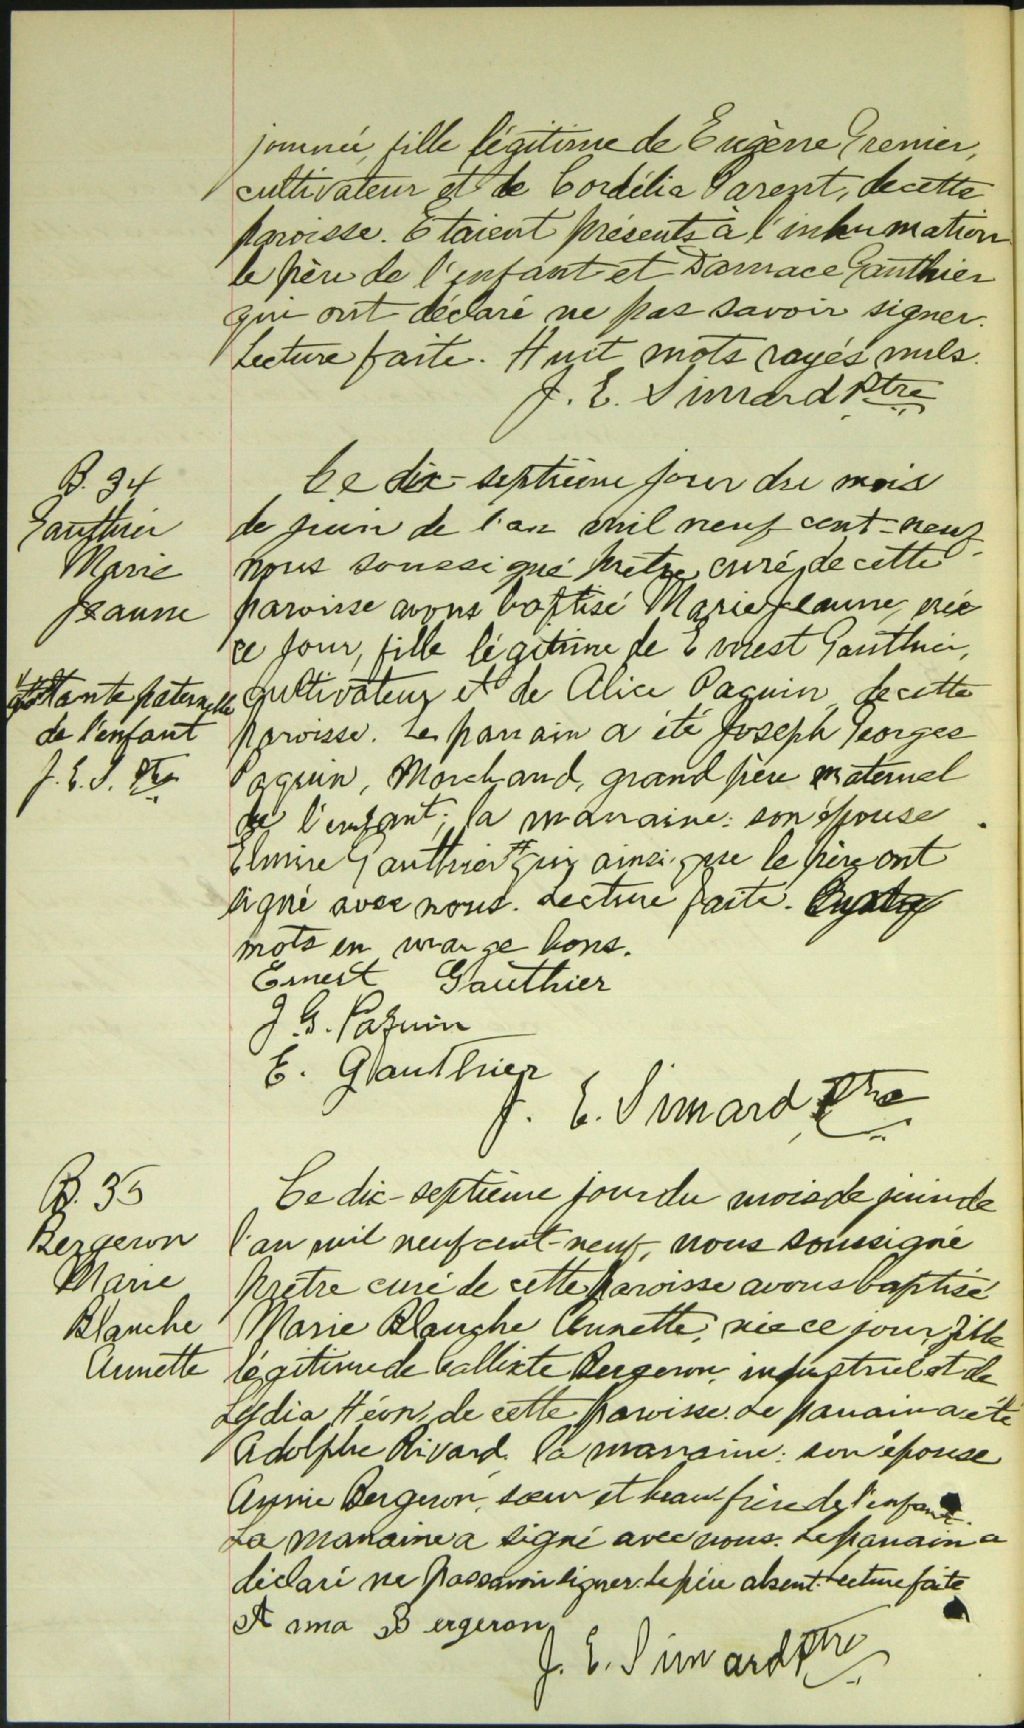 journée, fille légitime de Eugène Grenier,
cultivateur et de Cordélia Parent, de cette
paroisse. Etaient présents à l'inhumation
le père de l'enfant et Damace Gauthier
qui ont déclaré ne pas savoir signer.
Lecture faite. Huit mots rayés nuls.
J. E. Simard Ptre
B. 34
Gauthier
Marie
Jeanne
Ce dix-septième jour du mois
de juin de l'an mil neuf cent-neuf
nous soussigné prêtre curé de cette
paroisse avons baptisé Marie Jeanne, née
ce jour, fille légitime de Ernest Gauthier,
cultivateur et de Alice Paquin, de cette
paroisse. Le parrain a été Joseph Georges
Paquin, Marchand, grand père maternel
de l'enfant; la marraine: son épouse
Elmire Gauthier # qui ainsi que le père ont
signé avec nous. Lecture faite.
mots en marge bons.
# tante paternelle
de l'enfant
J. E. S. Ptre
Ernest Gauthier
J. G. Paquin
E. Gauthier
J. E. Simard Ptre
B. 35
Bergeron
Marie
Blanche
Annette
Ce dix-septième jour du mois de juin de
l'an mil neuf cent-neuf, nous soussigné
prêtre curé de cette paroisse avons baptisé
Marie Blanche Annette, née ce jour, fille
légitime de Callixte Bergeron, industriel et de
Lydia Héon, de cette paroisse. Le parrain a été
Adolphe Rivard, la marraine: son épouse
Annie Bergeron, soeur et beau-frère de l'enfant.
La marraine a signé avec nous. Le parrain a
déclaré ne pas savoir signer. Le père absent. Lecture faite
Anna Bergeron
J. E. Simard Ptre